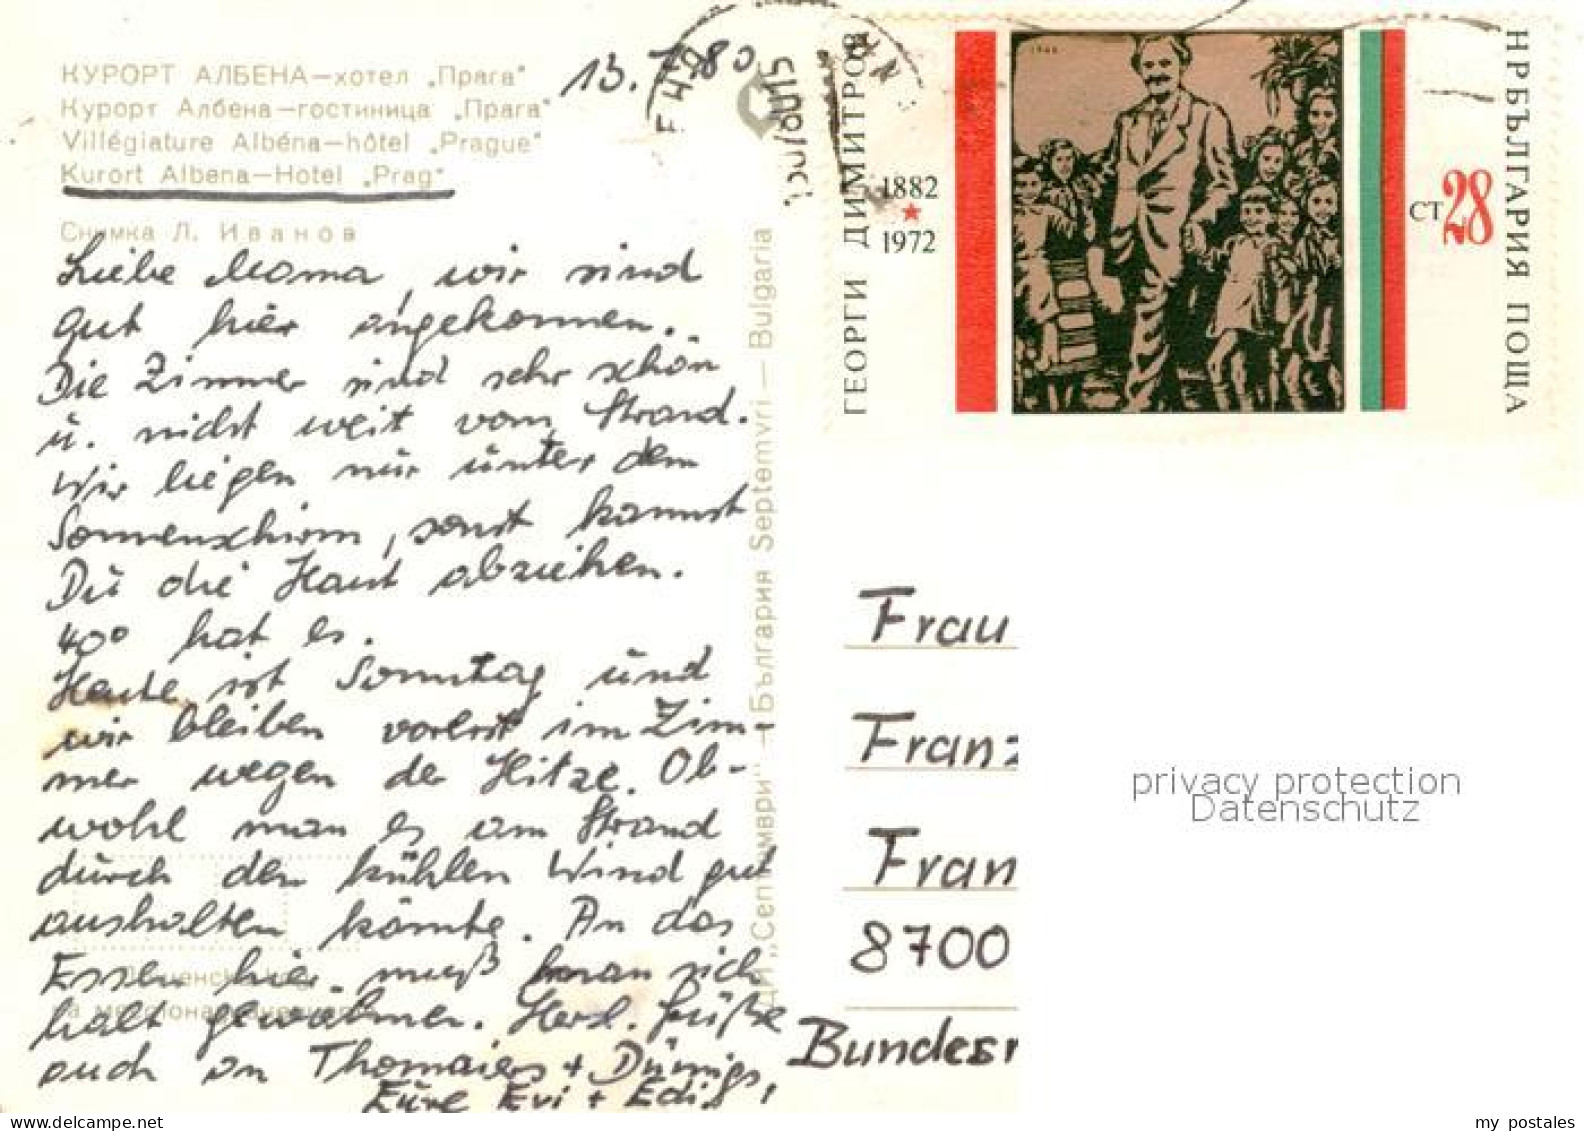 КУРОРТ АЛБЕНА—хотел „Прага“
Курорт Албена—гостиница „Прага“
Villégiature Albéna—hôtel „Prague“
Kurort Albena—Hotel „Prag“
Снимка Л. Иванов
13.7.80
Liebe Mama, wir sind
gut hier angekommen.
Die Zimmer sind sehr schön
u. nicht weit vom Strand.
Wir liegen nur unter dem
Sonnenschirm, sonst kannst
Du die Haut abziehen.
40° hat es.
Heute ist Sonntag und
wir bleiben vorerst im Zim-
mer wegen der Hitze. Ob-
wohl man es am Strand
durch den kühlen Wind gut
aushalten könnte. An das
Essen hier muß man sich
halt gewöhnen. Herzl. Grüße
auch an Thomaiers + Dünnigs,
Eure Evi + Edi
ДИ „Септември“ — България Septemvri — Bulgaria
ГЕОРГИ ДИМИТРОВ
1882
1972
СТ 28
НР БЪЛГАРИЯ ПОЩА
Frau
Franz
Fran
8700
Bundesr
privacy protection
Datenschutz
my postales
www.delcampe.net